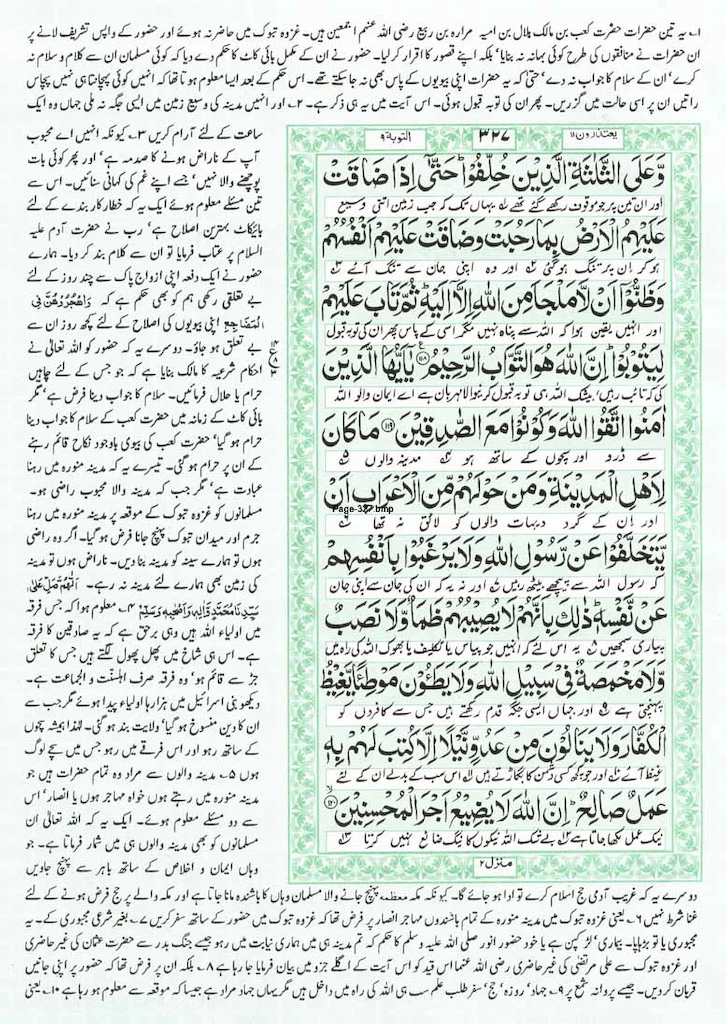 ۱۔ یہ تین حضرات حضرت کعب بن مالک ہلال بن امیہ مرارہ بن ربیع رضی اللہ عنہم اجمعین ہیں۔ غزوہ تبوک میں حاضر نہ ہوئے اور حضور کے واپس تشریف لانے پر
ان حضرات نے منافقوں کی طرح کوئی بہانہ نہ بنایا، بلکہ اپنے قصور کا اقرار کر لیا۔ حضور نے ان کے مکمل بائی کاٹ کا حکم دے دیا کہ کوئی مسلمان ان سے کلام و سلام نہ
کرے، ان کے سلام کا جواب نہ دے، حتیٰ کہ یہ حضرات اپنی بیویوں کے پاس بھی نہ جا سکتے تھے۔ اس حکم کے بعد ایسا معلوم ہوتا تھا کہ انہیں کوئی پہچانتا ہی نہیں پچاس
راتیں ان پر اسی حالت میں گزریں۔ پھر ان کی توبہ قبول ہوئی۔ اس آیت میں یہ ہی ذکر ہے۔ ۲۔ اور انہیں مدینہ کی وسیع زمین میں ایسی جگہ نہ ملی جہاں وہ ایک
یعتذرون ۱۱
۳۲۷
التوبة ۹
وَّعَلَى الثَّلٰثَةِ الَّذِیْنَ خُلِّفُوْا ؕ حَتّٰۤی اِذَا ضَاقَتْ
اور ان تین پر جو موقوف رکھے گئے تھے یہاں تک کہ جب زمین اتنی وسیع
عَلَیْهِمُ الْاَرْضُ بِمَا رَحُبَتْ وَضَاقَتْ عَلَیْهِمْ اَنْفُسُهُمْ
ہو کر ان پر تنگ ہو گئی اور وہ اپنی جان سے تنگ آئے
وَظَنُّوْۤا اَنْ لَّا مَلْجَاَ مِنَ اللّٰهِ اِلَّاۤ اِلَیْهِ ؕ ثُمَّ تَابَ عَلَیْهِمْ
اور انہیں یقین ہوا کہ اللہ سے پناہ نہیں مگر اسی کے پاس پھر ان کی توبہ قبول
لِیَتُوْبُوْا ؕ اِنَّ اللّٰهَ هُوَ التَّوَّابُ الرَّحِیْمُ ۝۱۱۸ یٰۤاَیُّهَا الَّذِیْنَ
کی کہ تائب رہیں، بیشک اللہ ہی توبہ قبول کرنیوالا مہربان ہے اے ایمان والو اللہ
اٰمَنُوا اتَّقُوا اللّٰهَ وَكُوْنُوْا مَعَ الصّٰدِقِیْنَ ۝۱۱۹ مَا كَانَ
سے ڈرو اور سچوں کے ساتھ ہو مدینہ والوں
لِاَهْلِ الْمَدِیْنَةِ وَمَنْ حَوْلَهُمْ مِّنَ الْاَعْرَابِ اَنْ
Page-327.bmp
اور ان کے گرد دیہات والوں کو لائق نہ تھا
یَّتَخَلَّفُوْا عَنْ رَّسُوْلِ اللّٰهِ وَلَا یَرْغَبُوْا بِاَنْفُسِهِمْ
کہ رسول اللہ سے پیچھے بیٹھ رہیں اور نہ یہ کہ ان کی جان سے اپنی جان
عَنْ نَّفْسِهٖ ؕ ذٰلِكَ بِاَنَّهُمْ لَا یُصِیْبُهُمْ ظَمَاٌ وَّلَا نَصَبٌ
پیاری سمجھیں یہ اس لئے کہ انہیں جو پیاس یا تکلیف یا بھوک اللہ کی راہ میں
وَّلَا مَخْمَصَةٌ فِیْ سَبِیْلِ اللّٰهِ وَلَا یَطَـُٔوْنَ مَوْطِئًا یَّغِیْظُ
پہنچتی ہے اور جہاں ایسی جگہ قدم رکھتے ہیں جس سے کافروں کو
الْكُفَّارَ وَلَا یَنَالُوْنَ مِنْ عَدُوٍّ نَّیْلًا اِلَّا كُتِبَ لَهُمْ بِهٖ
غیظ آئے اور جو کچھ کسی دشمن کا بگاڑتے ہیں اس سب کے بدلے ان کے لئے
عَمَلٌ صَالِحٌ ؕ اِنَّ اللّٰهَ لَا یُضِیْعُ اَجْرَ الْمُحْسِنِیْنَ ۝۱۲۰
نیک عمل لکھا جاتا ہے بے شک اللہ نیکوں کا نیگ ضائع نہیں کرتا
منزل ۲
ساعت کے لئے آرام کریں ۳۔ کیونکہ انہیں اے محبوب
آپ کے ناراض ہونے کا صدمہ ہے، اور پھر کوئی بات
پوچھنے والا نہیں، جسے اپنے غم کی کہانی سنائیں۔ اس سے
تین مسئلے معلوم ہوئے ایک یہ کہ خطا کار بندے کے لئے
بائیکاٹ بہترین اصلاح ہے، رب نے حضرت آدم علیہ
السلام پر عتاب فرمایا تو ان سے کلام بند کر دیا۔ ہمارے
حضور نے ایک دفعہ اپنی ازواج پاک سے چند روز کے لئے
بے تعلقی رکھی ہم کو بھی حکم ہے کہ وَاهْجُرُوْهُنَّ فِی
الْمَضَاجِعِ اپنی بیویوں کی اصلاح کے لئے کچھ روز ان سے
بے تعلق ہو جاؤ۔ دوسرے یہ کہ حضور کو اللہ تعالیٰ نے
احکام شرعیہ کا مالک بنایا ہے کہ جو جس کے لئے چاہیں
حرام یا حلال فرمائیں۔ سلام کا جواب دینا فرض ہے، مگر
بائی کاٹ کے زمانہ میں حضرت کعب کے سلام کا جواب دینا
حرام ہو گیا، حضرت کعب کی بیوی باوجود نکاح قائم رہنے
کے ان پر حرام ہو گئی۔ تیسرے یہ کہ مدینہ منورہ میں رہنا
عبادت ہے، مگر جب کہ مدینہ والا محبوب راضی ہو۔
مسلمانوں کو غزوہ تبوک کے موقعہ پر مدینہ میں رہنا
جرم اور میدان تبوک پہنچ جانا فرض ہو گیا۔ اگر وہ راضی
ہوں تو ہمارے سینہ کو مدینہ بنا دیں۔ ناراض ہوں تو مدینہ
کی زمین بھی ہمارے لئے مدینہ نہ رہے۔ اَللّٰهُمَّ صَلِّ عَلٰی
سَیِّدِنَا مُحَمَّدٍ وَّاٰلِهٖ وَاَصْحٰبِهٖ وَسَلِّمْ ۴۔ معلوم ہوا کہ جس فرقہ
میں اولیاء اللہ ہیں وہی برحق ہے کہ یہ صادقین کا فرقہ
ہے۔ اس ہی شاخ میں پھل پھول لگتے ہیں جس کا تعلق
جڑ سے قائم ہو، وہ فرقہ صرف اہلسنت و الجماعت ہے۔
دیکھو بنی اسرائیل میں ہزارہا اولیاء پیدا ہوئے مگر جب سے
ان کا دین منسوخ ہو گیا، ولایت بند ہو گئی۔ لہٰذا ہمیشہ سچوں
کے ساتھ رہو اور اس فرقے میں رہو جس میں سچے لوگ
ہوں ۵۔ مدینہ والوں سے مراد وہ تمام حضرات ہیں جو
مدینہ منورہ میں رہتے ہوں خواہ مہاجر ہوں یا انصار، اس
سے دو مسئلے معلوم ہوئے۔ ایک یہ کہ اللہ تعالیٰ ان
مسلمانوں کو بھی مدینہ والوں ہی میں شمار فرماتا ہے۔ جو
وہاں ایمان و اخلاص کے ساتھ باہر سے پہنچ جاویں
دوسرے یہ کہ غریب آدمی حج اسلام کرے تو ادا ہو جائے گا۔ کیونکہ مکہ معظمہ پہنچ جانے والا مسلمان وہاں کا باشندہ مانا جاتا ہے اور مکہ والے پر حج فرض ہونے کے لئے
غنا شرط نہیں ۶۔ یعنی غزوہ تبوک میں مدینہ منورہ کے تمام باشندوں مہاجر انصار پر فرض تھا کہ غزوہ تبوک میں حضور کے ساتھ سفر کریں ۷۔ بغیر شرعی مجبوری کے۔ یہ
مجبوری یا تو بڑھاپا، بیماری، لڑکپن ہے یا خود حضور انور صلی اللہ علیہ وسلم کا حکم کہ تم مدینہ ہی میں ہماری نیابت میں رہو جیسے جنگ بدر سے حضرت عثمان کی غیر حاضری
اور غزوہ تبوک سے علی مرتضیٰ کی غیر حاضری رضی اللہ عنہما اس قید کو اس آیت کے اگلے جزو میں بیان فرمایا جا رہا ہے ۸۔ بلکہ ان پر فرض تھا کہ حضور پر اپنی جانیں
قربان کر دیں۔ جیسے پروانہ شمع پر ۹۔ جہاد، روزہ، حج، سفر طلب علم سب ہی اللہ کی راہ میں داخل ہیں مگر یہاں جہاد مراد ہے جیسا کہ موقعہ سے معلوم ہو رہا ہے ۱۰۔ یعنی